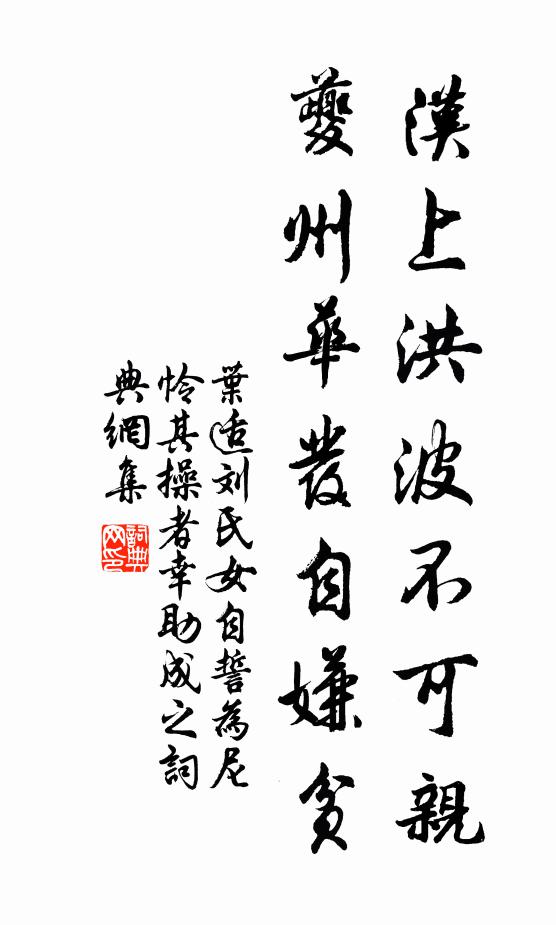 漢上洪波不可親
夔州華發自嫌貧
葉适刘氏女自誓為尼
怜其操者幸助成之詞
典網集
詞典网印